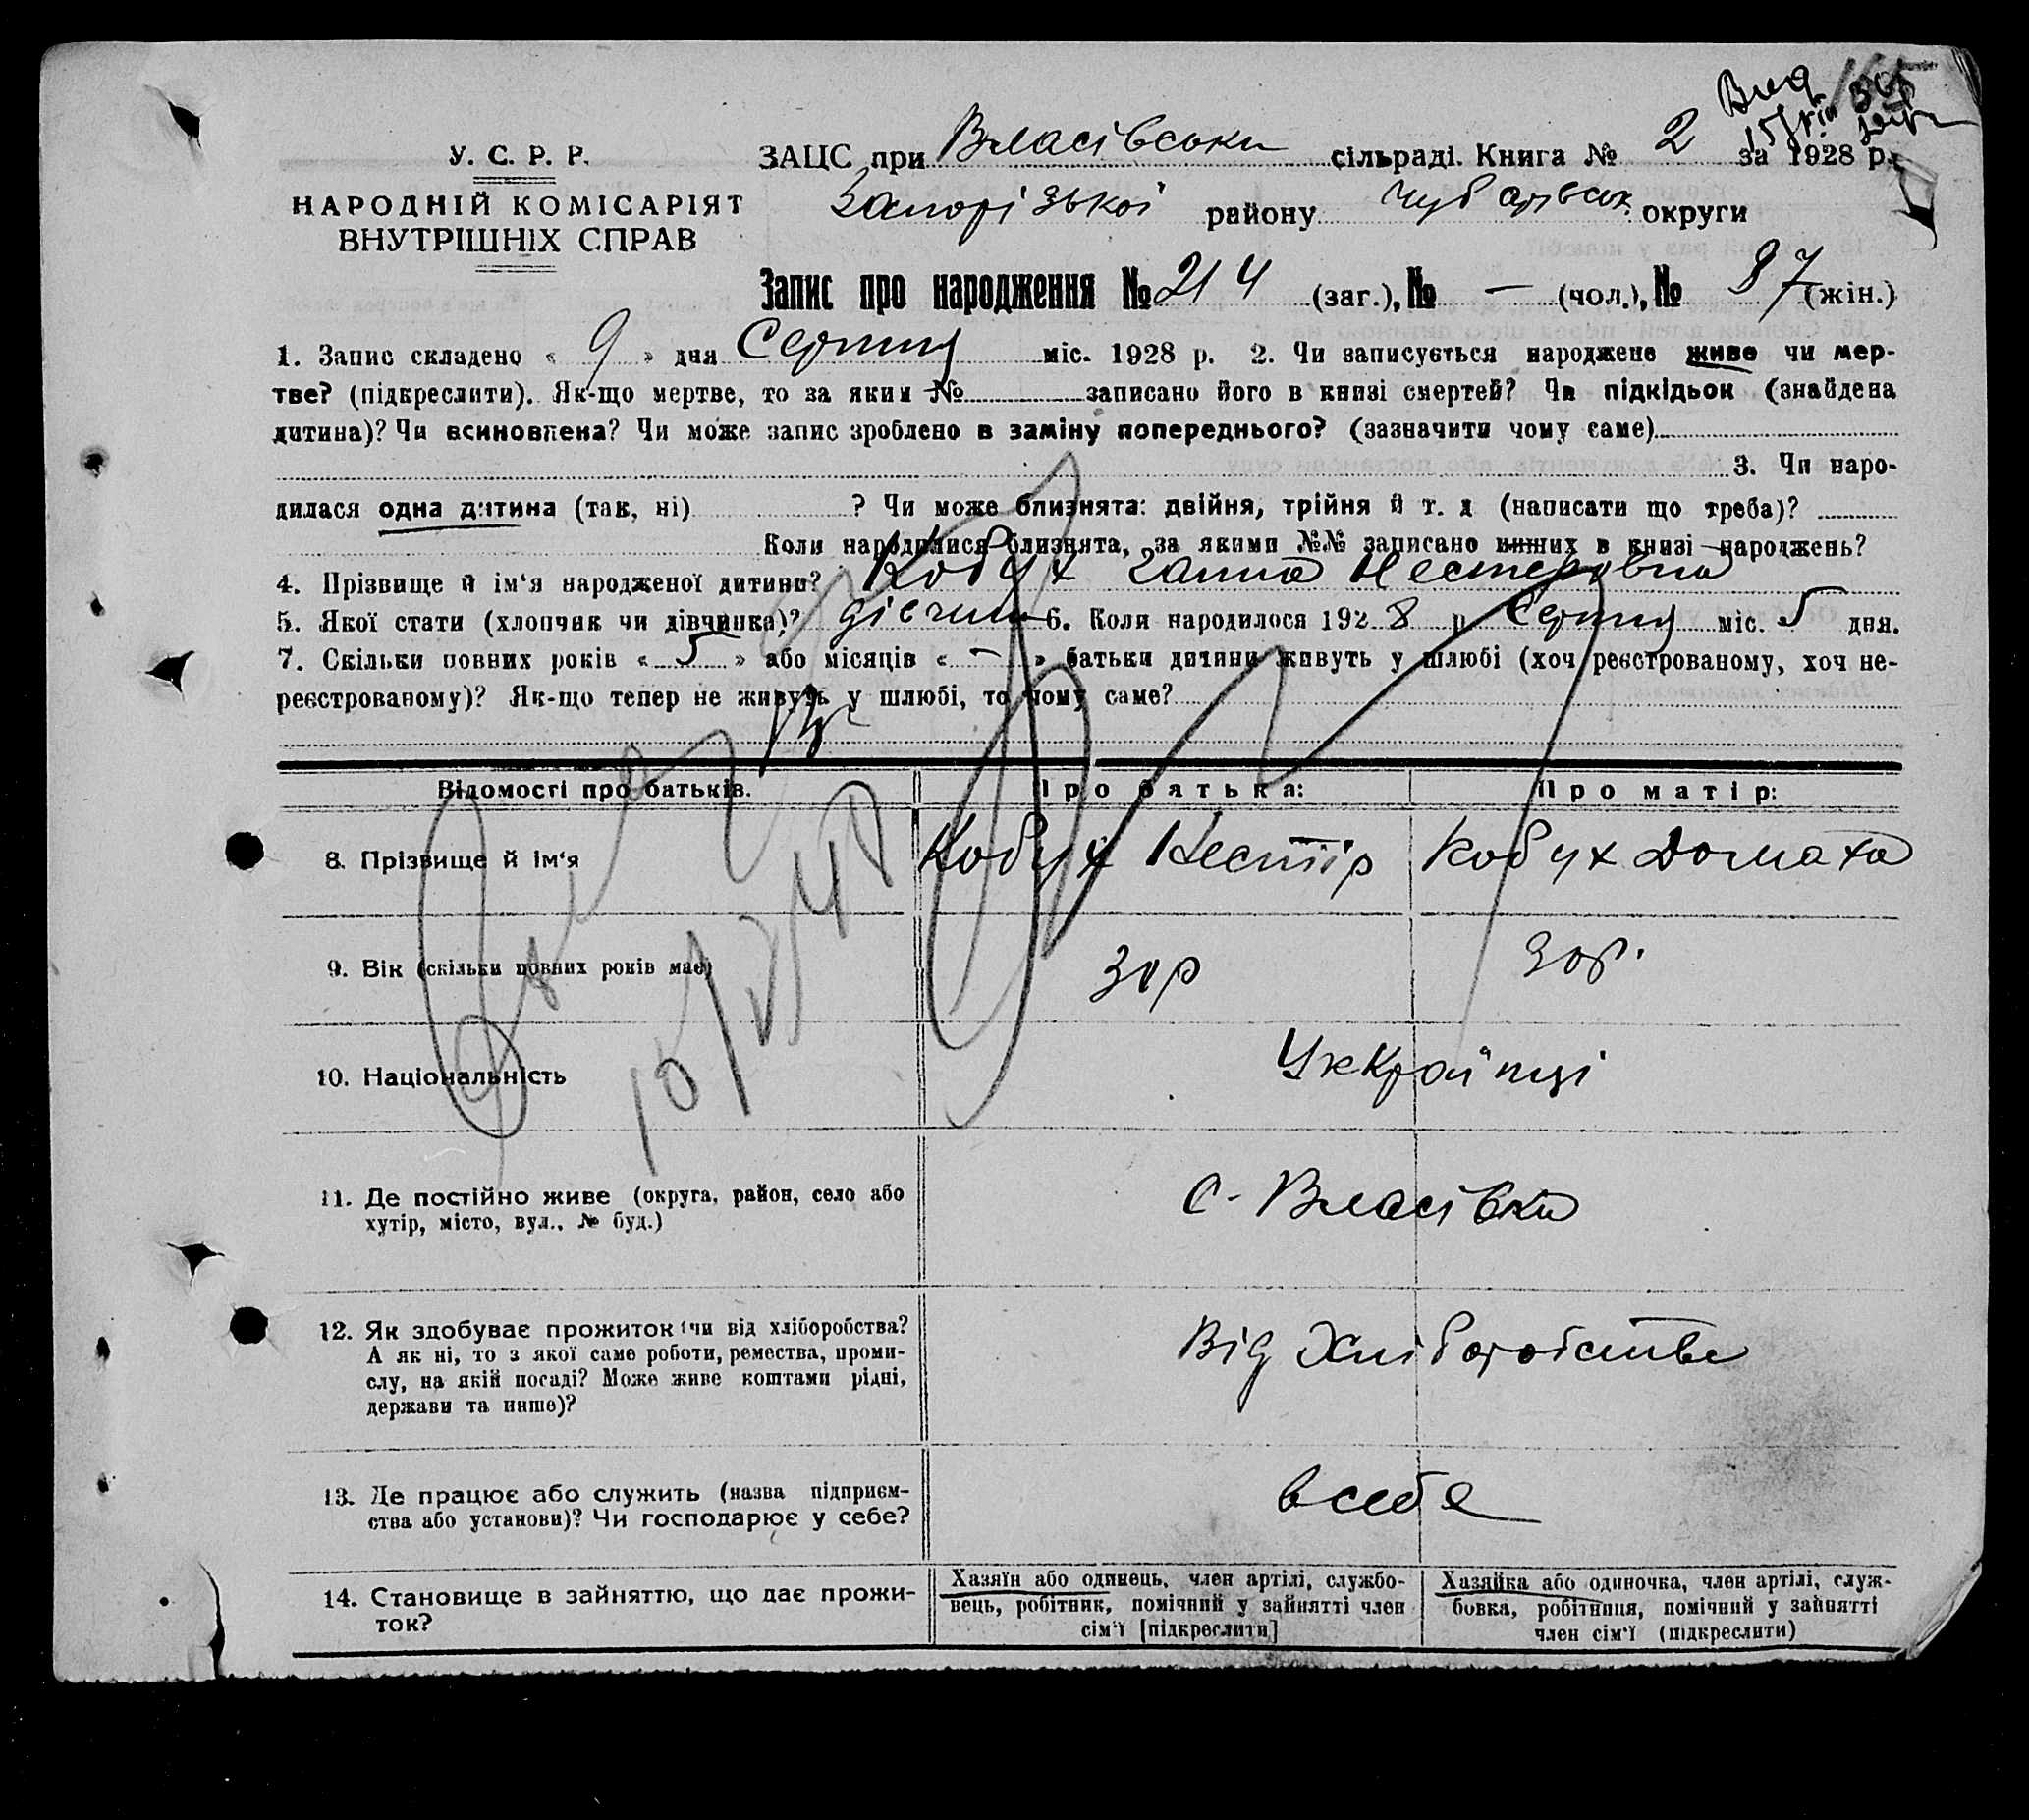 У. С. Р. Р.
НАРОДНІЙ КОМІСАРІЯТ
ВНУТРІШНІХ СПРАВ
ЗАЦС при Власівськи сільраді. Книга № 2 за 1928 р.
Запорізької району Чубарівськ округи
Запис про народження № 214 (заг.), № — (чол.), № 87 (жін.)
1. Запис складено « 9 » дня Серпня міс. 1928 р. 2. Чи записується народжене живе чи мер-
тве? (підкреслити). Як-що мертве, то за яким № записано його в книзі смертей? Чи підкідьок (знайдена
дитина)? Чи всиновлена? Чи може запис зроблено в заміну попереднього? (зазначити чому саме)
3. Чи наро-
дилася одна дитина (так, ні) ? Чи може близнята: двійня, трійня й т. д (написати що треба)?
Коли народилися близнята, за якими №№ записано инших в книзі народжень?
4. Прізвище й ім‘я народженої дитини? Кобух Ганна Нестеровна
5. Якої стати (хлопчик чи дівчинка)? дівчин 6. Коли народилося 1928 р Серпня міс. 5 дня.
7. Скільки повних років « 5 » або місяців « — » батьки дитини живуть у шлюбі (хоч реєстрованому, хоч не-
реєстрованому)? Як-що тепер не живуть у шлюбі, то чому саме?
Відомості про батьків.
Про батька:
Про матір:
8. Прізвище й ім‘я
Кобух Нестір
Кобух Домаха
9. Вік (скільки повних років має)
30р
30р.
10. Національність
Уккраїнці
11. Де постійно живе (округа, район, село або
хутір, місто, вул., № буд.)
С. Власівка
12. Як здобуває прожиток (чи від хліборобства?
А як ні, то з якої саме роботи, ремества, проми-
слу, на якій посаді? Може живе коштами рідні,
держави та инше)?
Від Хліборобства
13. Де працює або служить (назва підприєм-
ства або установи)? Чи господарює у себе?
в себе
14. Становище в зайняттю, що дає прожи-
ток?
Хазяїн або одинець, член артілі, службо-
вець, робітник, помічний у зайнятті член
сім‘ї [підкреслити]
Хазяйка або одиночка, член артілі, служ-
бовка, робітниця, помічний у зайнятті
член сім‘ї (підкреслити)